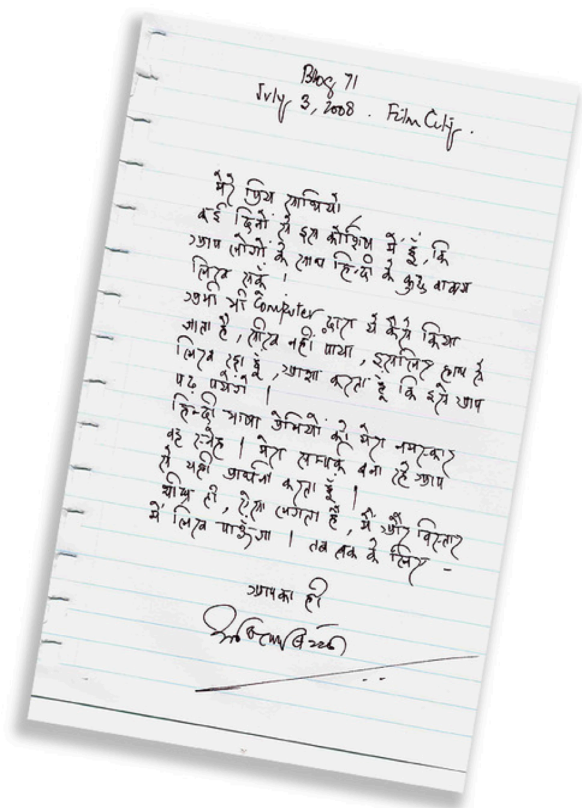 Blog 71
July 3, 2008. Film City.
मेरे प्रिय साथियों
कई दिनों से इस कोशिष में हूँ, कि
आप लोगों के साथ हिन्दी के कुछ वाक्य
लिख सकूँ ।
अभी भी Computer द्वारा ये कैसे किया
जाता है, सीख नहीं पाया, इसलिए हाथ से
लिख रहा हूँ, आशा करता हूँ कि इसे आप
पढ़ पायेंगे ।
हिन्दी भाषा प्रेमियों को मेरा नमस्कार
स्नेह । मेरा सम्पर्क बना रहे आप
से यही प्रार्थना करता हूँ ।
शीघ्र ही, ऐसा लगता है, मैं और विस्तार
में लिख पाऊँगा । तब तक के लिए -
आपका ही